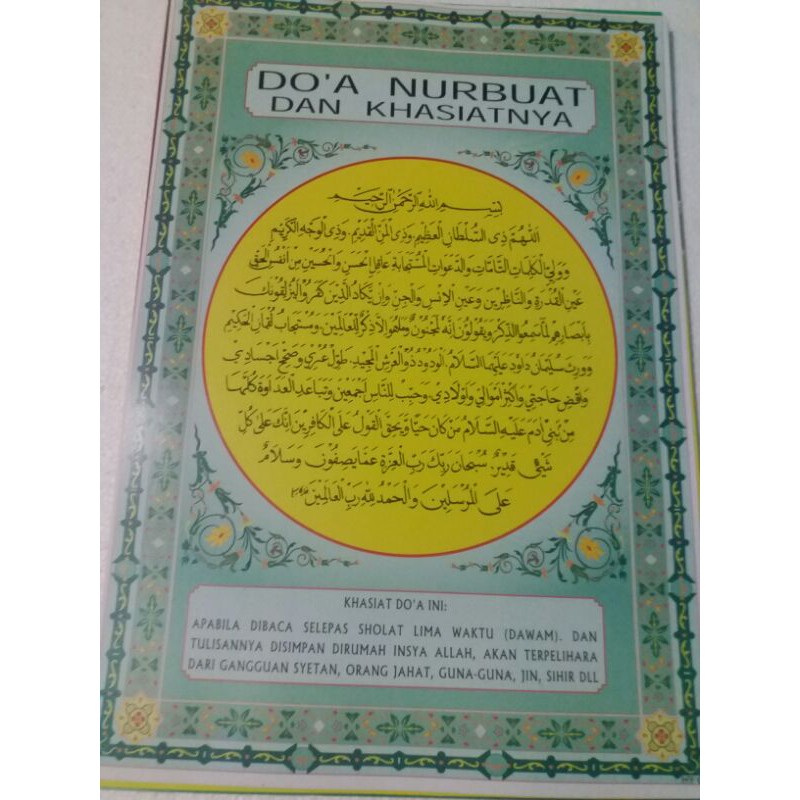 DO'A NURBUAT
DAN KHASIATNYA
بِسْمِ اللهِ الرَّحْمٰنِ الرَّحِيْمِ
اَللّٰهُمَّ ذِى السُّلْطَانِ الْعَظِيْمِ وَذِى الْمَنِّ الْقَدِيْمِ وَذِى الْوَجْهِ الْكَرِيْمِ
وَوَلِيِّ الْكَلِمَاتِ التَّامَّاتِ وَالدَّعَوَاتِ الْمُسْتَجَابَةِ عَاقِلِ الْحَسَنِ وَالْحُسَيْنِ مِنْ اَنْفُسِ الْحَقِّ
عَيْنِ الْقُدْرَةِ وَالنَّاظِرِيْنَ وَعَيْنِ الْاِنْسِ وَالْجِنِّ وَاِنْ يَكَادُ الَّذِيْنَ كَفَرُوْا لَيُزْلِقُوْنَكَ
بِاَبْصَارِهِمْ لَمَّا سَمِعُوا الذِّكْرَ وَيَقُوْلُوْنَ اِنَّهُ لَمَجْنُوْنٌ وَمَا هُوَ اِلَّا ذِكْرٌ لِلْعَالَمِيْنَ، وَمُسْتَجَابُ لُقْمَانِ الْحَكِيْمِ
وَوَرِثَ سُلَيْمَانُ دَاوُدَ عَلَيْهِمَا السَّلَامُ. اَلْوَدُوْدُ ذُو الْعَرْشِ الْمَجِيْدِ. طَوِّلْ عُمْرِيْ وَصَحِّحْ اَجْسَادِيْ
وَاقْضِ حَاجَتِيْ وَاَكْثِرْ اَمْوَالِيْ وَاَوْلَادِيْ، وَحَبِّبْ لِلنَّاسِ اَجْمَعِيْنَ وَتَبَاعَدِ الْعَدَاوَةَ كُلَّهَا
مِنْ بَنِيْ اٰدَمَ عَلَيْهِ السَّلَامُ مَنْ كَانَ حَيًّا وَيَحِقَّ الْقَوْلُ عَلَى الْكَافِرِيْنَ اِنَّكَ عَلَى كُلِّ
شَيْئٍ قَدِيْرٌ. سُبْحَانَ رَبِّكَ رَبِّ الْعِزَّةِ عَمَّا يَصِفُوْنَ وَسَلَامٌ
عَلَى الْمُرْسَلِيْنَ وَالْحَمْدُ لِلّٰهِ رَبِّ الْعَالَمِيْنَ
KHASIAT DO'A INI:
APABILA DIBACA SELEPAS SHOLAT LIMA WAKTU (DAWAM). DAN
TULISANNYA DISIMPAN DIRUMAH INSYA ALLAH, AKAN TERPELIHARA
DARI GANGGUAN SYETAN, ORANG JAHAT, GUNA-GUNA, JIN, SIHIR DLL